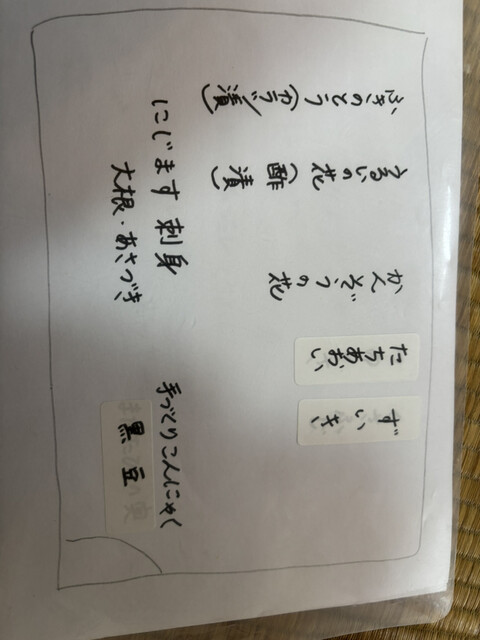 ふきのとう(カラシ漬)
うるいの花(酢漬)
かんぞうの花
たちあおい
ずいき
にじます 刺身
大根・あさつき
手づくりこんにゃく
黒豆